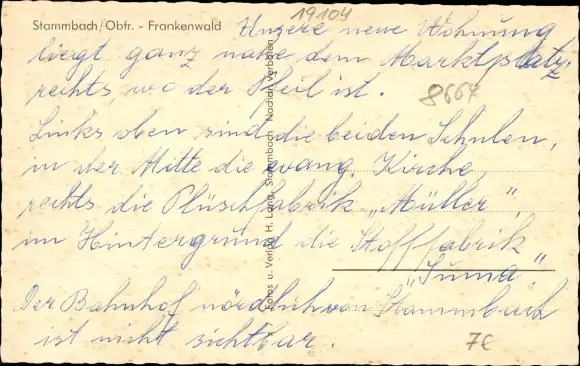 Stammbach/Obfr. - Frankenwald
19104
Unsere neue Wohnung
liegt ganz nahe dem Marktplatz,
rechts, wo der Pfeil ist.
8667
Links oben sind die beiden Schulen,
in der Mitte die evang. Kirche,
rechts die Plüschfabrik „Müller",
im Hintergrund die Stofffabrik
„Suma".
Der Bahnhof nördlich von Stammbach
ist nicht sichtbar.
7€
Fotos u. Verlag H. Lang, Stammbach Nachdr. verboten